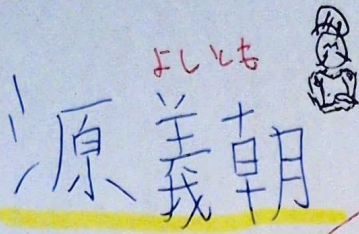 よしとも
源義朝